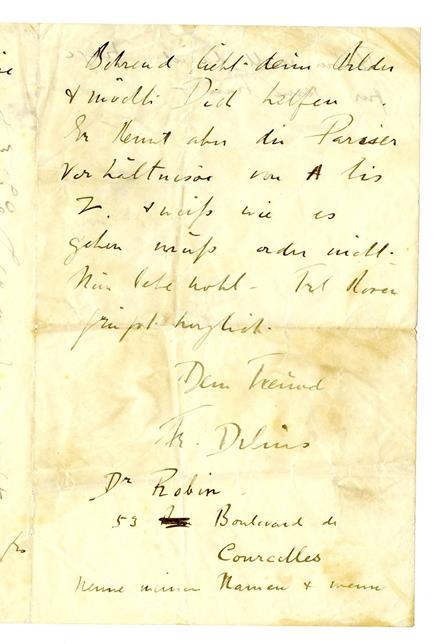 Behrend liebt deine Bilder
& möchte Dich helfen.
Er kennt aber die Pariser
Verhältnisse von A bis
Z. & weiß wie es
gehen muß oder nicht.
Nun lebe wohl –
grüßt herzlich.
Dein Freund
Fr. Delius
Dr Robin
53 Boulevard de
Courcelles
Nenne meinen Namen & wenn